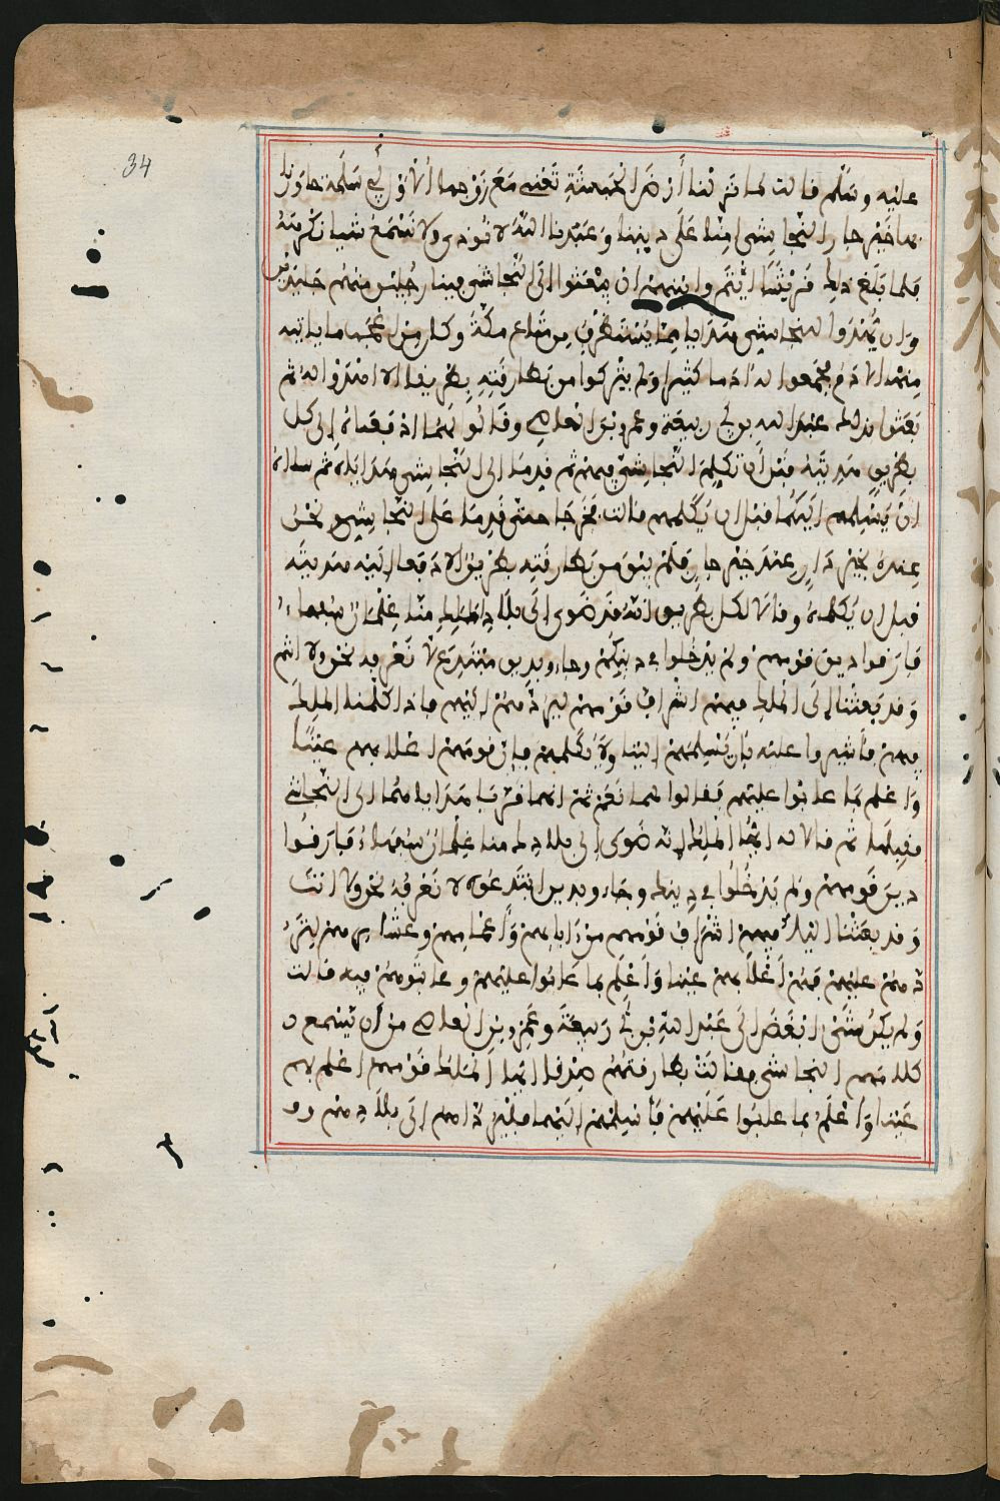 34
عليه وسلم قالت لما نزلنا أرض الحبشة تعني مع زوجها الأول أبي سلمة جاورنا
بها خير جار النجاشي أمنا على ديننا وعبدنا الله لا نوذى ولا نسمع شيا نكرهه
فلما بلغ ذلك قريشا ايتمروا بينهم ان يبعثوا الى النجاشي فينا رجلين منهم جلدين
وان يهدوا للنجاشي هدايا مما يستطرف من متاع مكة وكان من اعجب ما ياتيه
منها الادم فجمعوا له ادما كثيرا ولم يتركوا من بطارقته بطريقا الا اهدوا له ثم
بعثوا بذلك عبد الله بن أبي ربيعة وعمرو بن العاصي وقالوا لهما ادفعاه إلى كل
بطريق هديته قبل أن تكلم النجاشي فيهم ثم قدما الى النجاشي هداياه ثم سلاه
ان يسلمهم اليكما قبل ان يكلمهم قالت فخرجا حتى قدما على النجاشي ونحن
عنده بخير دار عند خير جار فلم يبق من بطارقته بطريق الا دفعا اليه هديته
قبل ان يكلماه وقالا لكل بطريق انه قد ضوى إلى بلاد الملك منا غلمان سفهاء
فارقوا دين قومهم ولم يدخلوا في دينكم وجاءوا بدين مبتدع لا نعرفه نحن ولا انتم
وقد بعثنا إلى الملك فيهم اشراف قومهم ليردهم اليهم فاذا كلمنا الملك
فيهم فأشيروا عليه بأن يسلمهم إلينا ولا يكلمهم فإن قومهم اعلا بهم عينا
واعلم بما عابوا عليهم فقالوا لهما نعم ثم انهما قربا هداياهما الى النجاشي
فقبلها ثم قالا له ايها الملك إنه ضوى إلى بلادك منا غلمان سفهاء فارقوا
دين قومهم ولم يدخلوا في دينك وجاءوا بدين ابتدعوه لا نعرفه نحن ولا انت
وقد بعثنا اليك فيهم اشراف قومهم من ابايهم وأعمامهم وعشايرهم لتر
دهم عليهم فهم أعلا بهم عينا وأعلم بما عابوا عليهم وعاتبوهم فيه قالت
ولم يكن شيء ابغض إلى عبد الله بن أبي ربيعة وعمرو بن العاصي من أن يسمع
كلامهم النجاشي فقالت بطارقته صدقا ايها الملك قومهم اعلم بهم
عينا وأعلم بما عابوا عليهم فأسلمهم إليهما فليرداهم إلى بلادهم و